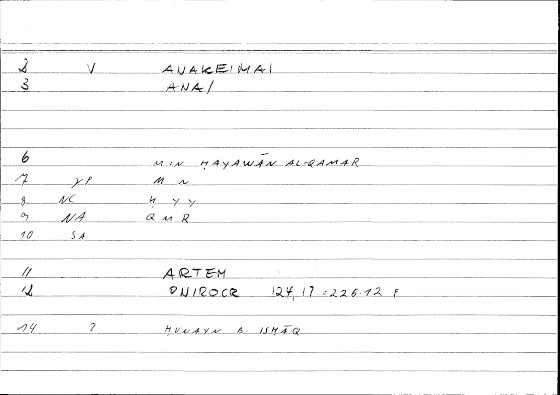 2 V ANAKEIMAI
3 ANA/
6 MIN ḤAYAWĀN AL-QAMAR
7 γP M N
8 NC Ḥ Y Y
9 NA Q M R
10 SA
11 ARTEM
12 ONIROCR 124,17 = 226.12 F
14 ? ḤUNAYN B. ISḤĀQ